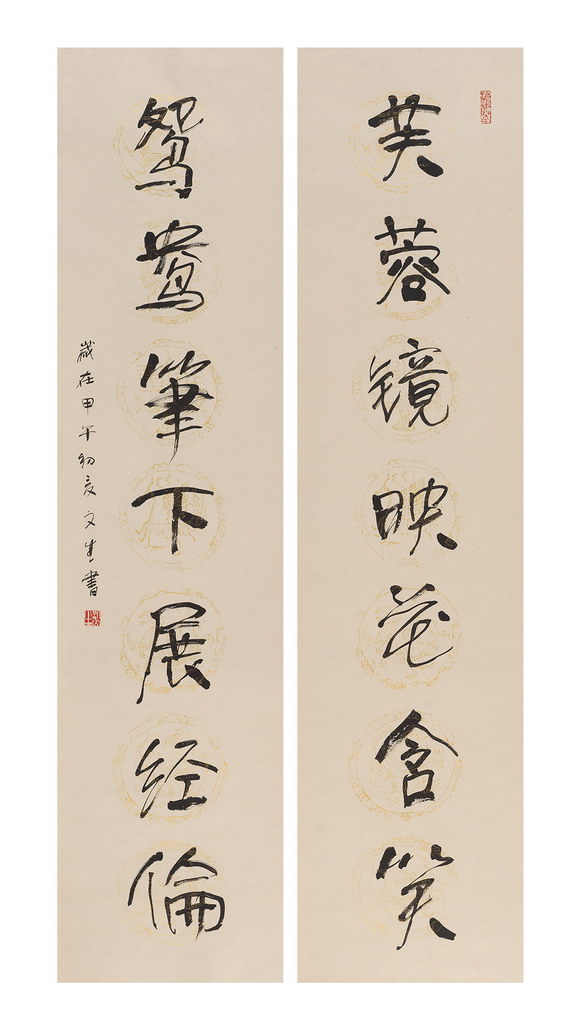 芙蓉镜映花含笑
鸳鸯筆下展经倫
歲在甲午初夏文生書